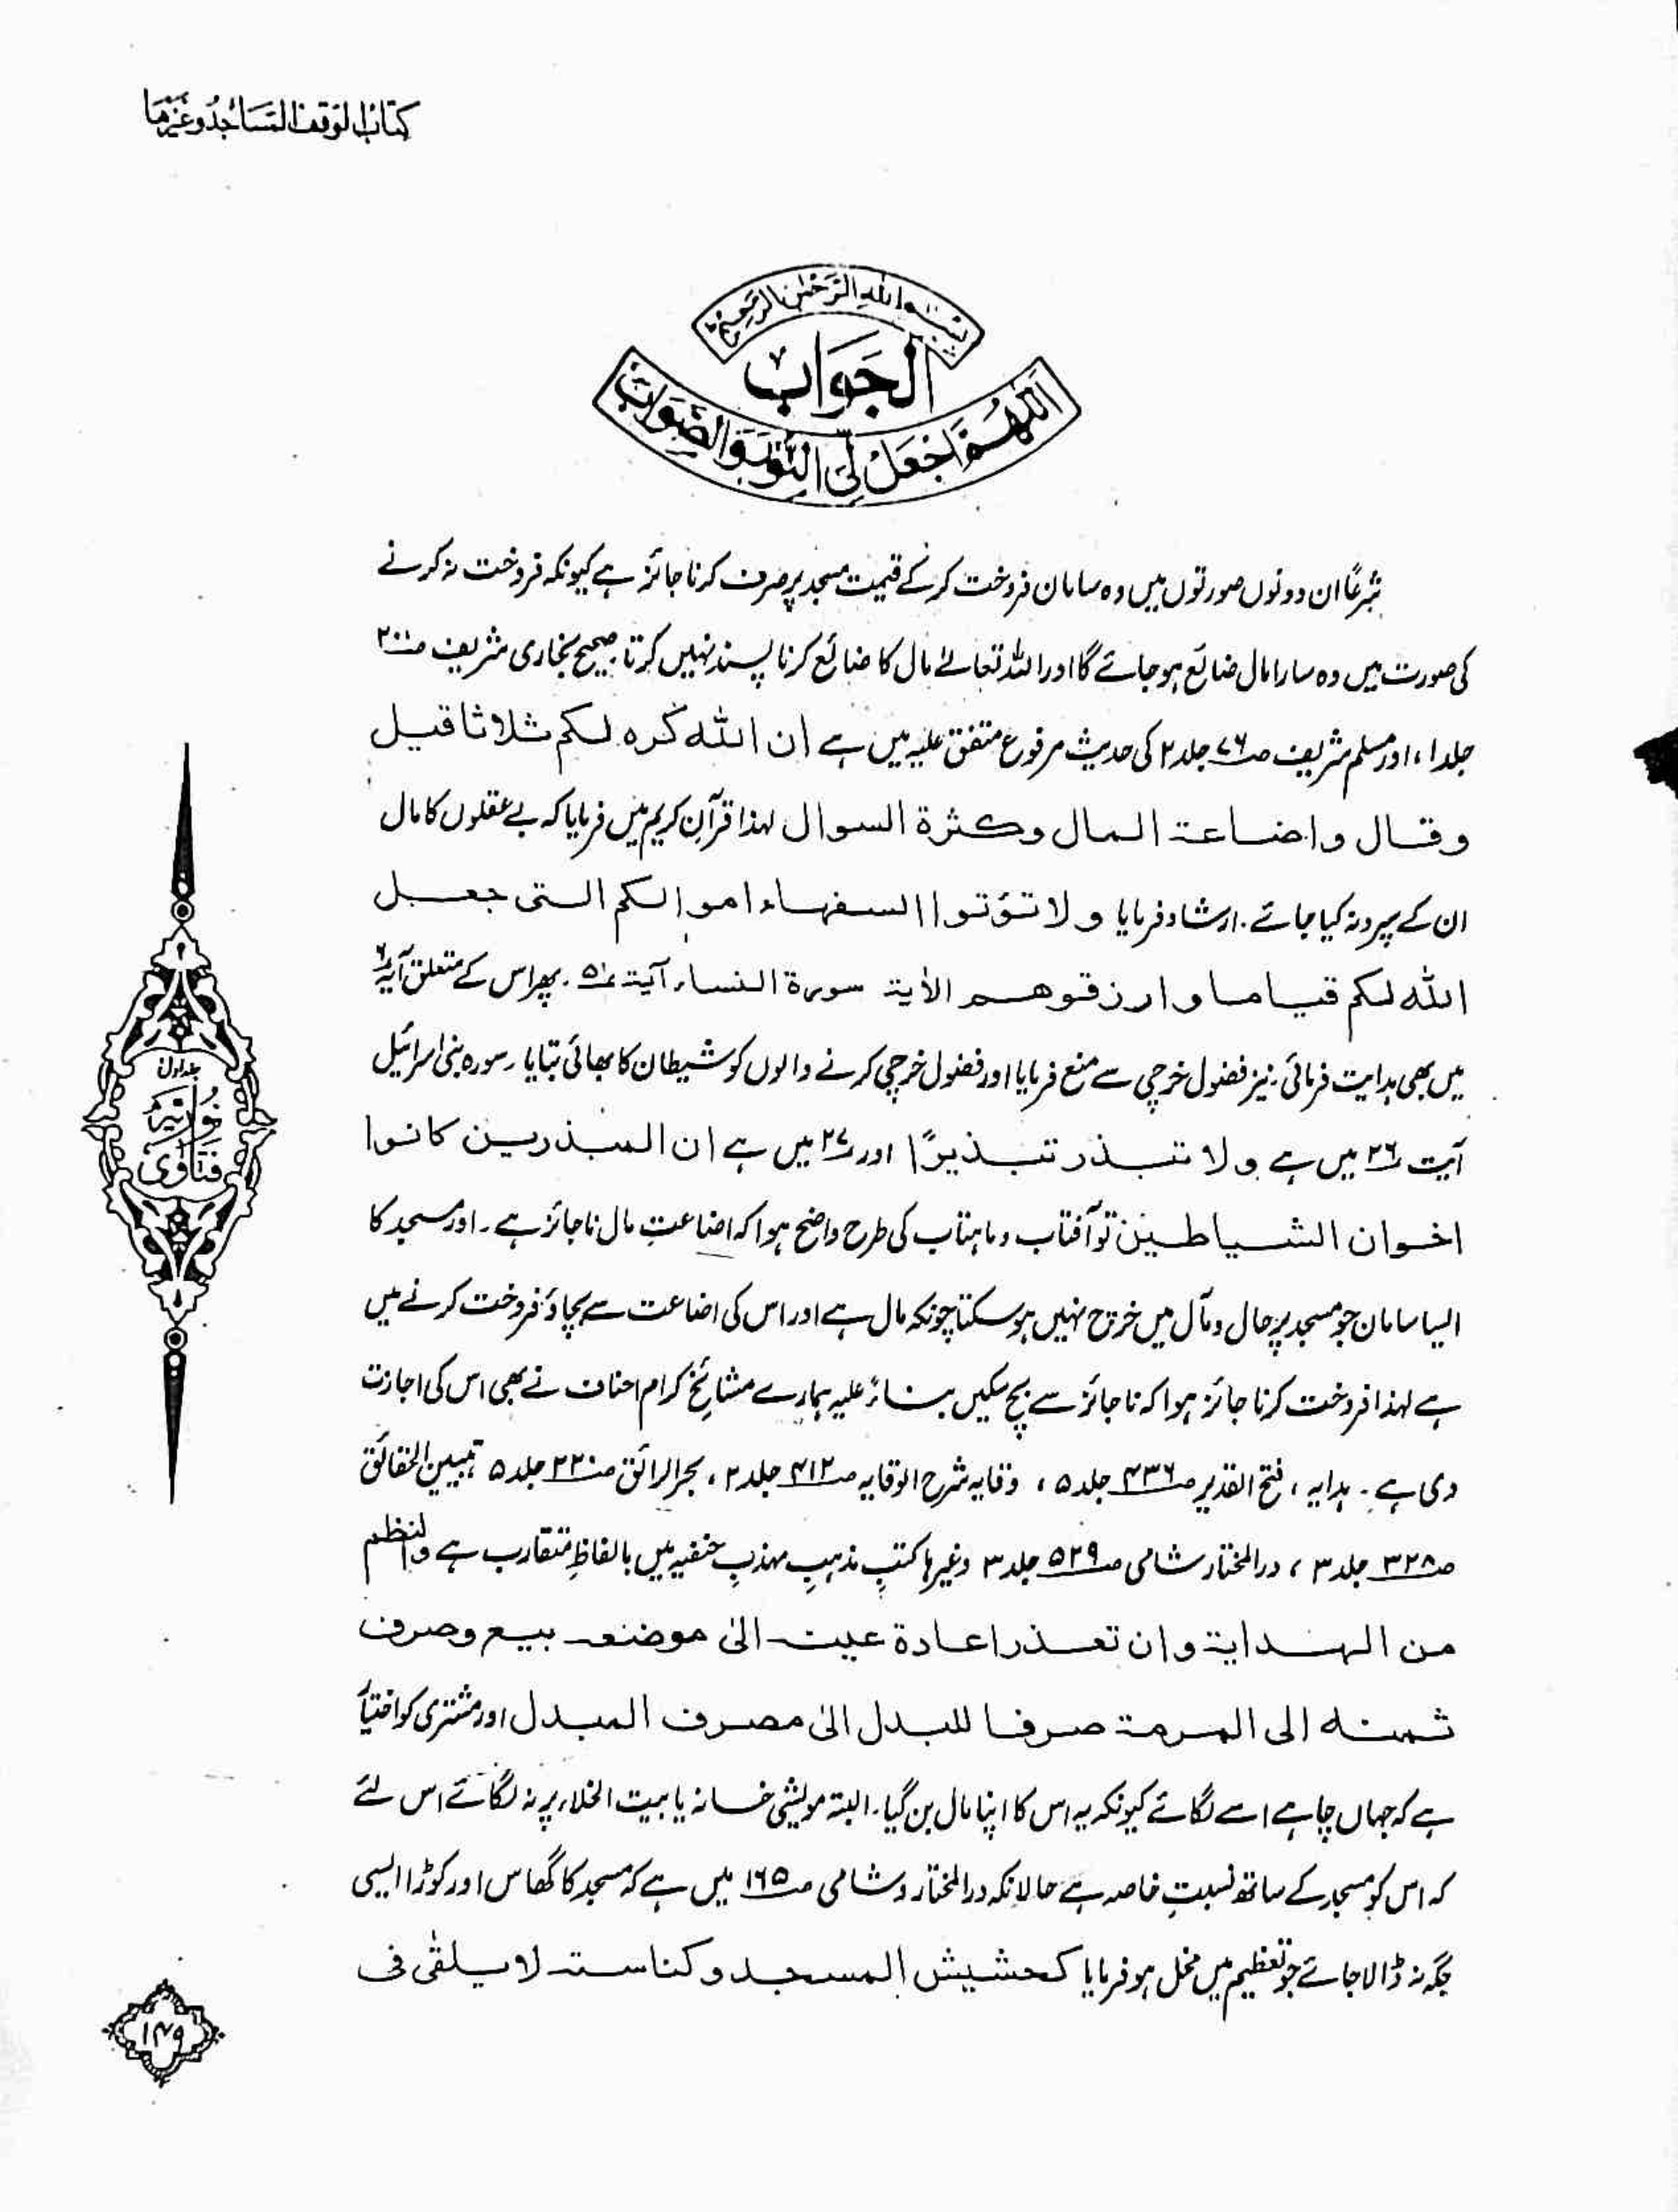 کتاب الوقف المساجد وغیرہا
بسم اللہ الرحمٰن الرحیم
الجواب
اللھم اجعل لی النور والصواب
شرعًا ان دونوں صورتوں میں وہ سامان فروخت کرکے قیمت مسجد پر صرف کرنا جائز ہے کیونکہ فروخت نہ کرنے
کی صورت میں وہ سارا مال ضائع ہو جائے گا اور اللہ تعالےٰ مال کا ضائع کرنا پسند نہیں کرتا صحیح بخاری شریف صـ۲۰۰
جلد ۱، اور مسلم شریف صـ۷۶ جلد ۲ کی حدیث مرفوع متفق علیہ میں ہے ان اللہ کرہ لکم ثلاثا قیل
وقال واضاعۃ المال وکثرۃ السوال لہذا قرآن کریم میں فرمایا کہ بے عقلوں کا مال
ان کے سپرد نہ کیا جائے۔ ارشاد فرمایا ولا تؤتوا السفہاء اموالکم التی جعل
اللہ لکم قیاما وارزقوھم الاٰیۃ سورۃ النساء آیۃ ۵۔ پھر اس کے متعلق آیہ ۶
میں بھی ہدایت فرمائی۔ نیز فضول خرچی سے منع فرمایا اور فضول خرچی کرنے والوں کو شیطان کا بھائی بتایا۔ سورہ بنی اسرائیل
آیت ۲۶ میں ہے ولا تبذر تبذیرًا اور ۲۷ میں ہے ان المبذرین کانوا
اخوان الشیاطین تو آفتاب و ماہتاب کی طرح واضح ہوا کہ اضاعتِ مال ناجائز ہے۔ اور مسجد کا
ایسا سامان جو مسجد پر حال و مآل میں خرچ نہیں ہو سکتا چونکہ مال ہے اور اس کی اضاعت سے بچاؤ فروخت کرنے میں
ہے لہذا فروخت کرنا جائز ہوا کہ ناجائز سے بچ سکیں بناءً علیہ ہمارے مشائخ کرام احناف نے بھی اس کی اجازت
دی ہے۔ ہدایہ، فتح القدیر صـ۴۳۶ جلد ۵، وقایہ شرح الوقایہ صـ۴۱۲ جلد ۲، بحر الرائق صـ۲۲۰ جلد ۵ تبیین الحقائق
صـ۳۲۸ جلد ۳، در المختار شامی صـ۵۲۹ جلد ۳ وغیرہا کتبِ مذہبِ مہذبِ حنفیہ میں بالفاظِ متقارب ہے والنظم
من الہدایۃ وان تعذر اعادۃ عینہ الیٰ موضعہ بیع وصرف
ثمنہ الی المرمۃ صرفا للبدل الیٰ مصرف المبدل اور مشتری کو اختیار
ہے کہ جہاں چاہے اسے لگائے کیونکہ یہ اس کا اپنا مال بن گیا۔ البتہ مویشی خانہ یا بیت الخلاء پر نہ لگائے اس لئے
کہ اس کو مسجد کے ساتھ نسبتِ خاصہ ہے حالانکہ در المختار و شامی صـ۱۶۵ میں ہے کہ مسجد کا گھاس اور کوڑا ایسی
جگہ نہ ڈالا جائے جو تعظیم میں مخل ہو فرمایا کحشیش المسجد وکناستہ لا یلقٰی فی
جلد اول
نوریہ
فتاویٰ
۱۴۹